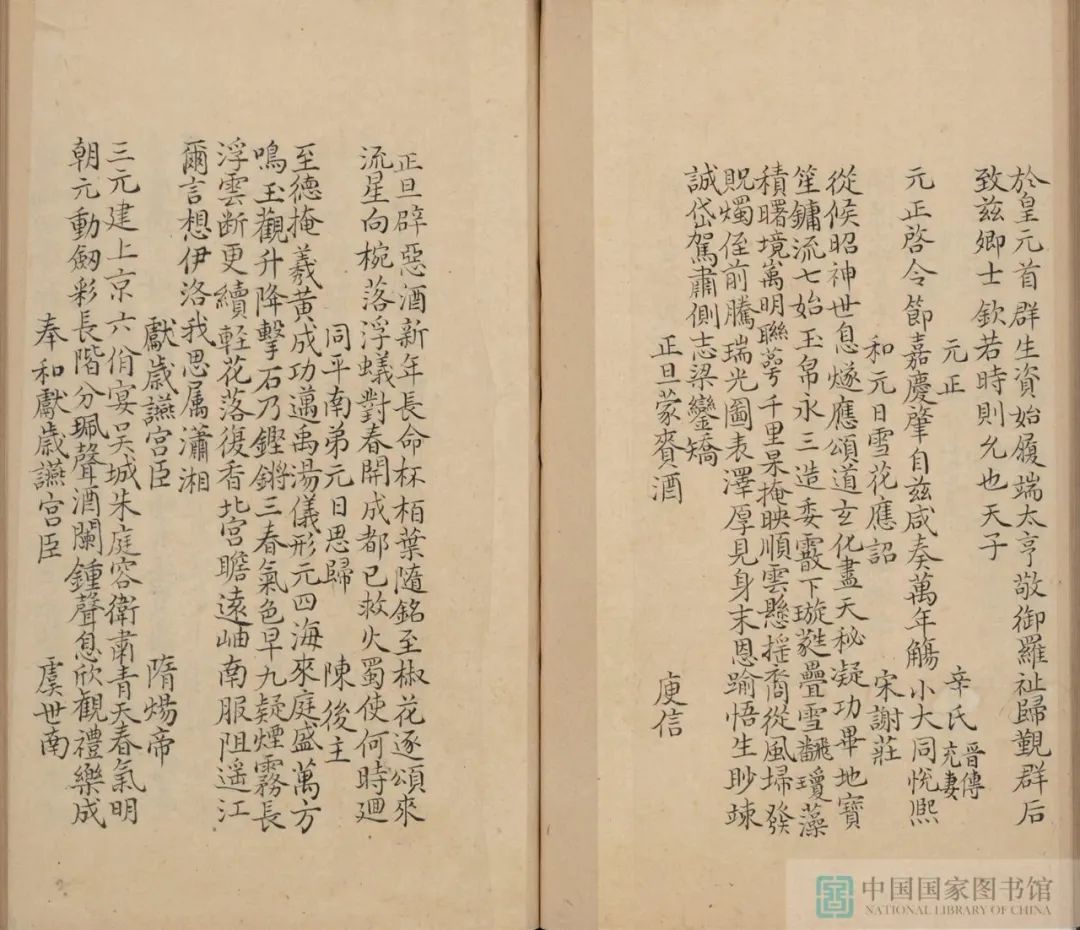 於皇元首群生資始履端太亨敬御羅祉歸覲群后
致兹卿士欽若時則允也天子
元正 辛氏 晋傅充妻
元正啓令節嘉慶肇自兹咸奏萬年觴小大同悅熈
和元日雪花應詔 宋謝莊
從候昭神世息燧應頌道玄化盡天秘凝功畢地寶
笙鏞流七始玉帛永三造委霰下璇蕤疊雪翻瓊藻
積曙境萬明聯萼千里杲掩映順雲懸揺裔從風掃發
貺燭侄前騰瑞光圖表澤厚見身末恩踰悟生眇竦
誠岱駕肅側志梁鑾矯
正旦蒙賚酒 庾信
正旦辟惡酒新年長命杯栢葉隨銘至椒花逐頌來
流星向椀落浮蟻對春開成都已救火蜀使何時廻
同平南弟元日思歸 陳後主
至德掩羲黄成功邁禹湯儀形元四海來庭盛萬方
鳴玉觀升降擊石乃鏗鏘三春氣色早九疑煙霧長
浮雲断更續軽花落復香北宫瞻遠岫南服阻遥江
爾言想伊洛我思属瀟湘
獻歲讌宫臣 隋煬帝
三元建上京六佾宴吴城朱庭容衛肅青天春氣明
朝元動劔彩長階分珮聲酒闌鍾聲息欣觀禮樂成
奉和獻歲讌宫臣 虞世南
中国国家图书馆
NATIONAL LIBRARY OF CHINA